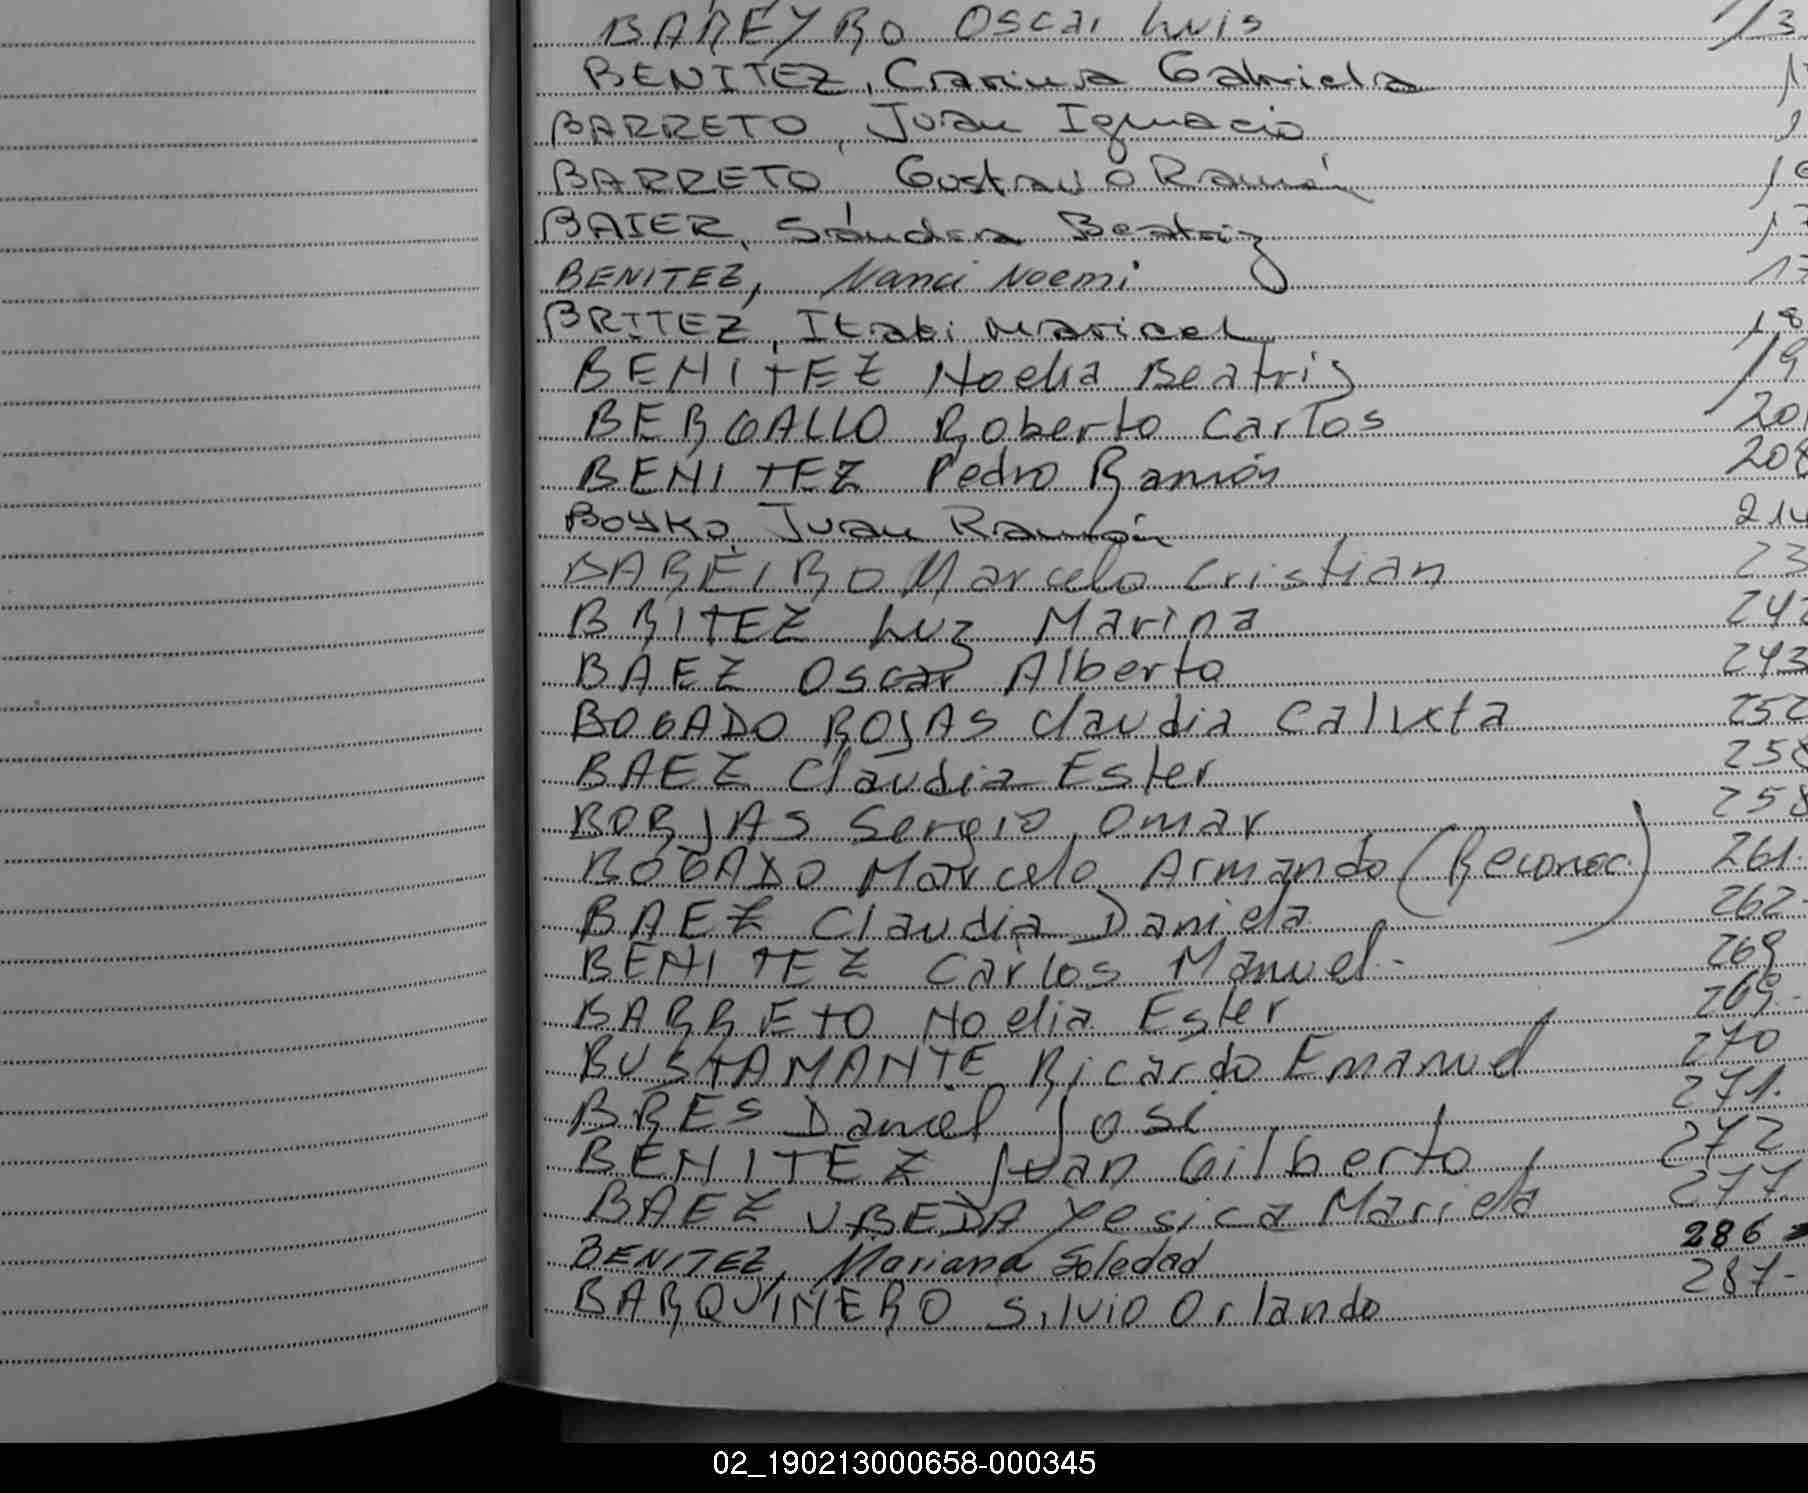 BAREYRO Oscar Luis
BENITEZ, Carina Gabriela
BARRETO, Juan Ignacio
BARRETO Gustavo Ramón
BAIER, Sándra Beatriz
BENITEZ, Nanci Noemi
BRITEZ, Itatí Maricel 18
BENITEZ Noelia Beatriz 19
BERGALLO Roberto Carlos 201
BENITEZ Pedro Ramón 208
BOYKO, Juan Ramón 214
BAREIRO Marcelo Cristian 23
BRITEZ Luz Marina 242
BAEZ Oscar Alberto 243
BOGADO ROJAS Claudia Calixta 252
BAEZ Claudia Ester 258
BORJAS Sergio Omar 258
BOGADO Marcelo Armando (Reconoc.) 261.
BAEZ Claudia Daniela 262-
BENITEZ Carlos Manuel.- 269
BARRETO Noelia Ester 269.-
BUSTAMANTE Ricardo Emanuel 270
BRES Daniel José 271.
BENITEZ Juan Gilberto 272
BAEZ UBEDA Yesica Mariela 277
BENITEZ, Mariana Soledad 286
BARQUINERO Silvio Orlando 287-
02_190213000658-000345